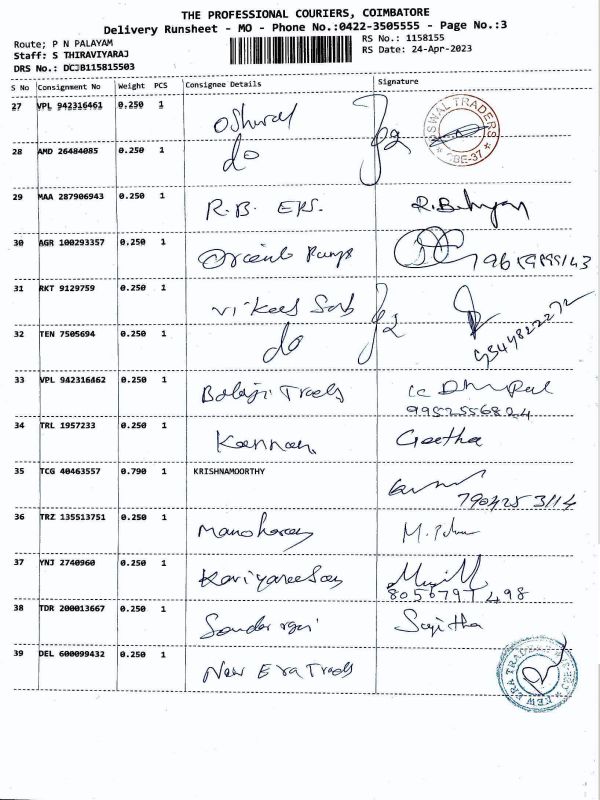 THE PROFESSIONAL COURIERS, COIMBATORE
Delivery Runsheet - MO - Phone No.:0422-3505555 - Page No.:3
Route; P N PALAYAM
RS No.: 1158155
Staff: S THIRAVIYARAJ
RS Date: 24-Apr-2023
DRS No.: DCJB115815503
S No Consignment No Weight PCS Consignee Details Signature
27 VPL 942316461 0.250 1
OSWAL TRADERS
CBE-37
28 AMD 26484085 0.250 1 do
29 MAA 287906943 0.250 1 R.B. EPS.
30 AGR 100293357 0.250 1 Orient Pumps
31 RKT 9129759 0.250 1 Vikas Sons
32 TEN 7505694 0.250 1 do
33 VPL 942316462 0.250 1 Balaji Trads
9952556824
34 TRL 1957233 0.250 1 Kannan Geetha
35 TCG 40463557 0.790 1 KRISHNAMOORTHY
36 TRZ 135513751 0.250 1 Manoharan
37 YNJ 2740960 0.250 1
38 TDR 200013667 0.250 1 Sujitha
39 DEL 600099432 0.250 1 New Era Trads
NEW ERA